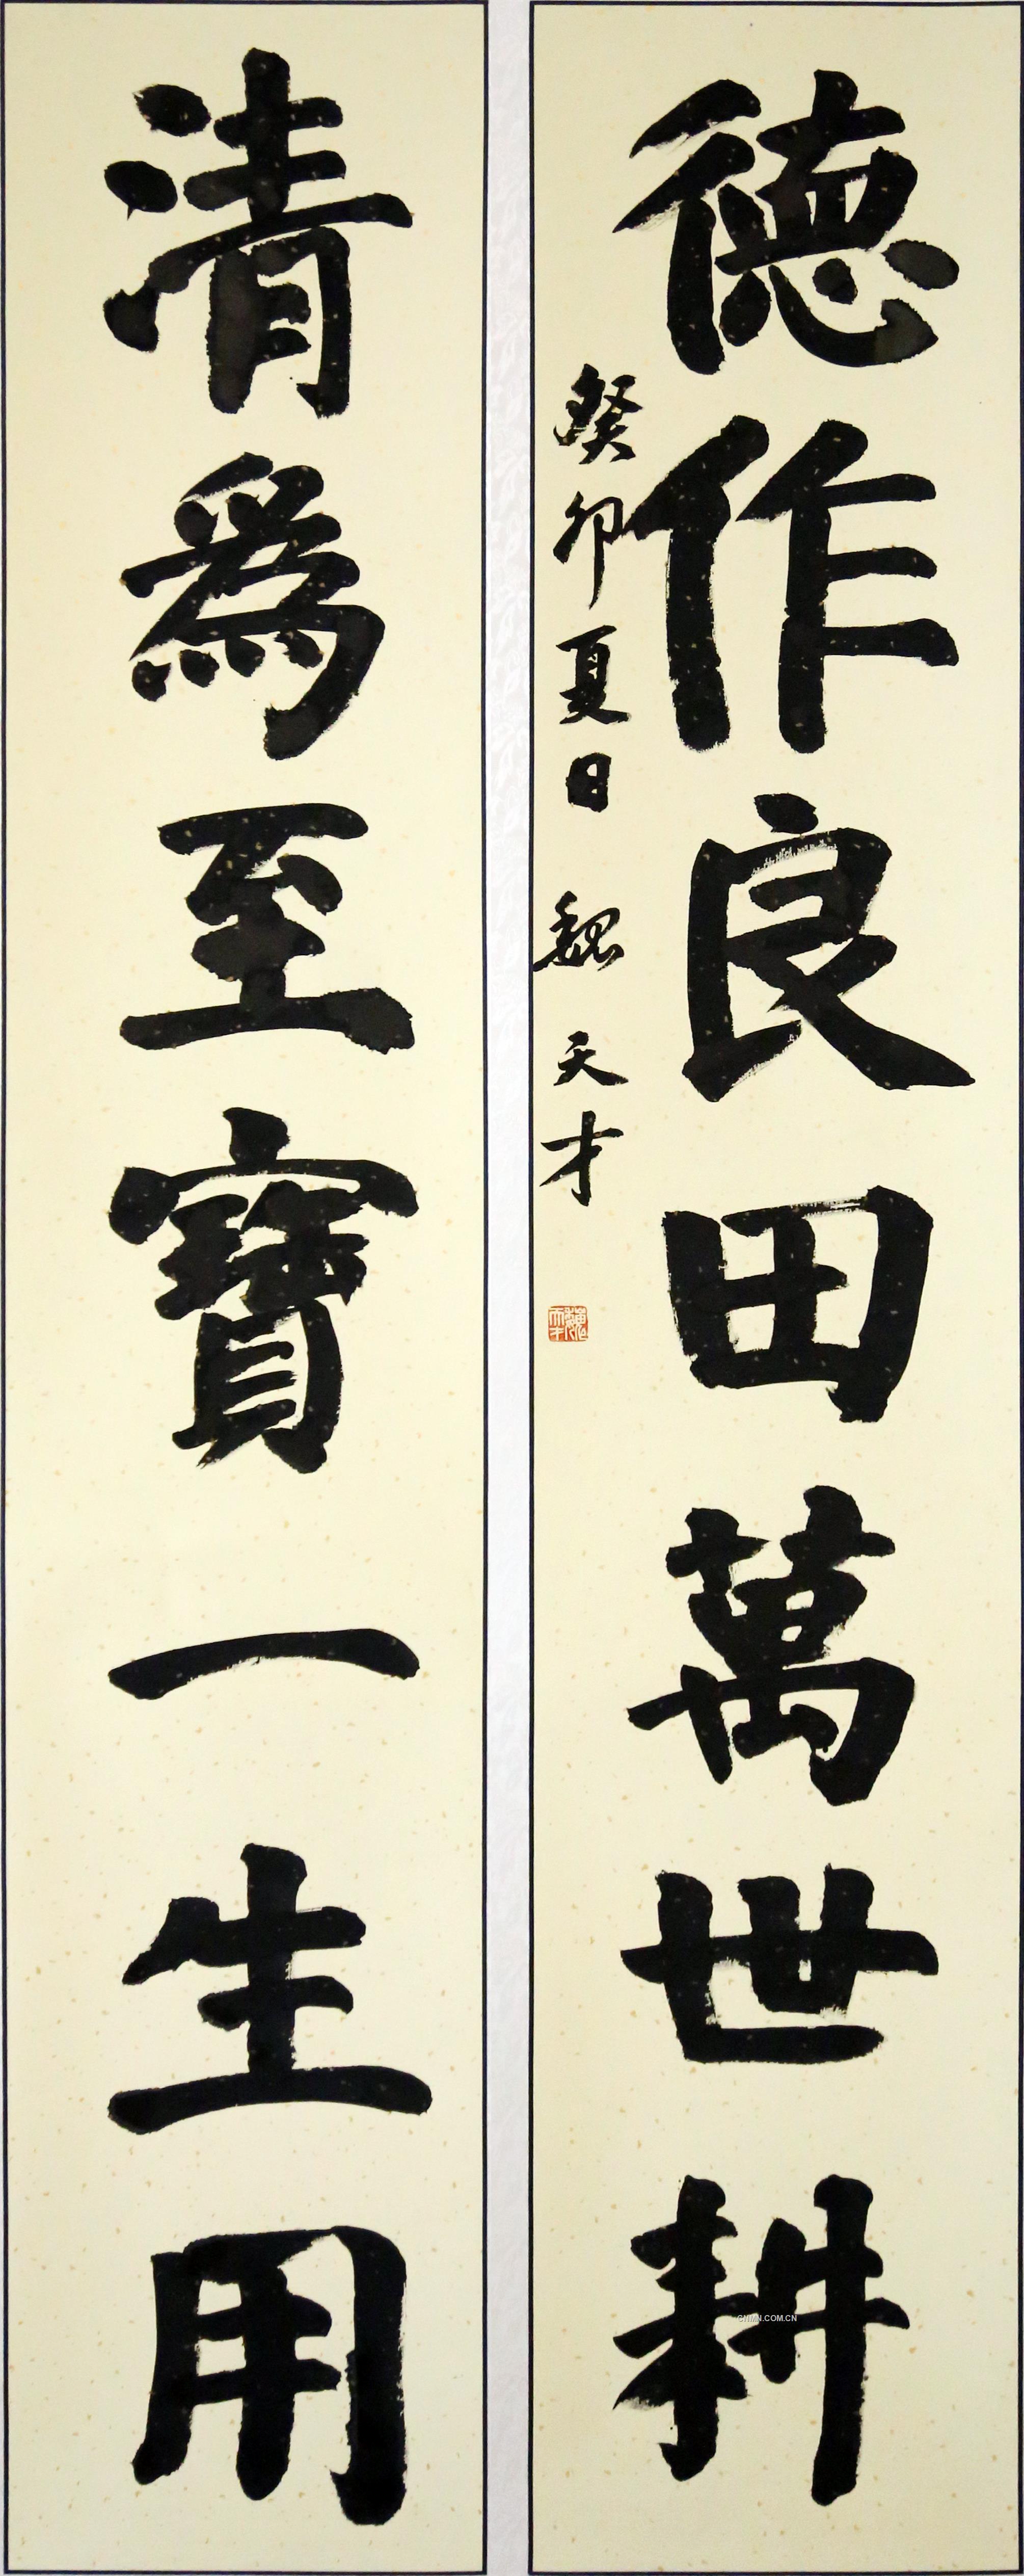 清爲至寶一生用
德作良田萬世耕
癸卯夏日 魏天才
魏天才
CNMN.COM.CN